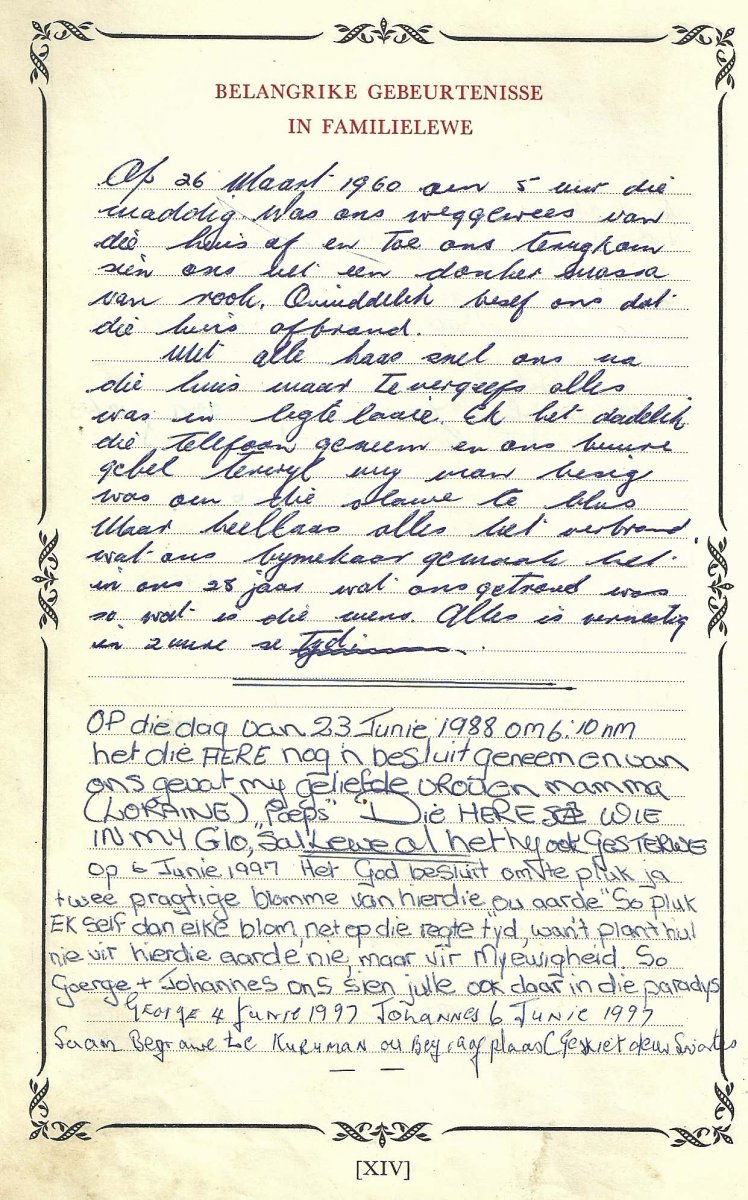 BELANGRIKE GEBEURTENISSE
IN FAMILIELEWE
Op 26 Maart 1960 om 5 uur die
maddag was ons weggewees van
die huis af en toe ons terugkom
sien ons net een donker massa
van rook. Onmiddelik besef ons dat
die huis afbrand.
Met alle haas snel ons na
die huis maar tevergeefs alles
was in ligte laaie. Ek het dadelik
die telefoon geneem en ons bure
gebel terwyl my man besig
was om die vlamme te blus
Maar heellaas alles het verbrand
wat ons bymekaar gemaak het
in ons 28 jaar wat ons getroud was
so wat is die mens. Alles is vernietig
in 2 ure se tyd.
OP die dag van 23 Junie 1988 om 6:10 nm
het die HERE nog 'n besluit geneem en van
ons gevat my geliefde vrou en mamma
(LORAINE) "Poeps" Die HERE Sê WIE
IN MY Glo, "Sal Lewe al het hy ook GESTERWE
Op 6 Junie 1997 Het God besluit om te pluk ja
twee pragtige blomme van hierdie "ou aarde" "So pluk
EK self dan elke blom, net op die regte tyd, want plant hul
nie vir hierdie aarde nie, maar vir My ewigheid. So
Goerge + Johannes ons sien julle ook daar in die paradys
GEORGE 4 Junie 1997 Johannes 6 JUNIE 1997
Saam Begrawe te KURUMAN ou (Geskiet deur Swartes